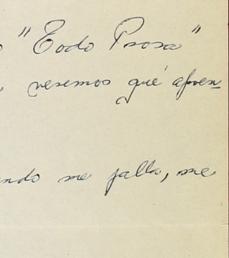 "Todo Prosa"
veremos qué apren=
ndo me falla, me